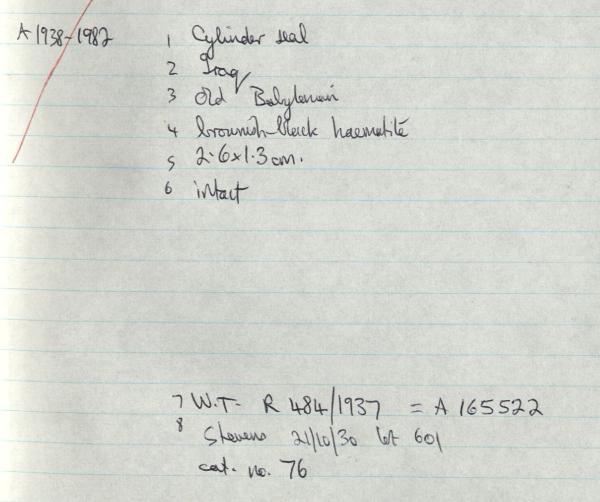 A 1938-1982 1 Cylinder seal
2 Iraq
3 Old Babylonian
4 brownish-black haematite
5 2.6x1.3 cm.
6 intact
7 W.T- R 484/1937 = A 165522
8 Stevens 21/10/30 lot 601
cat. no. 76